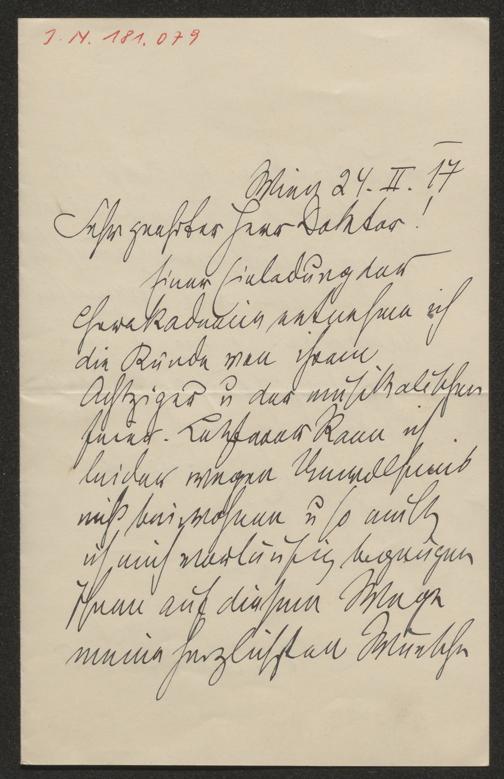 J. N. 181.079
Wien 24. II. 17
Sehr geehrter Herr Doktor!
Einer Einladung der
Chorakademie entnehme ich
die Kunde von ihrem
Achtziger u der musikalischen
Feier. Letzterer kann ich
leider wegen Unwohlseins
nicht beiwohnen u so muß
ich mich vorläufig begnügen
Ihnen auf diesem Wege
meine herzlichsten Wünsche